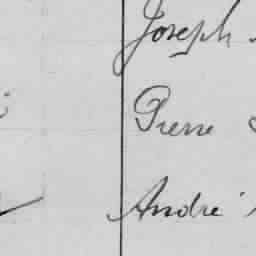 Joseph
Pierre
André